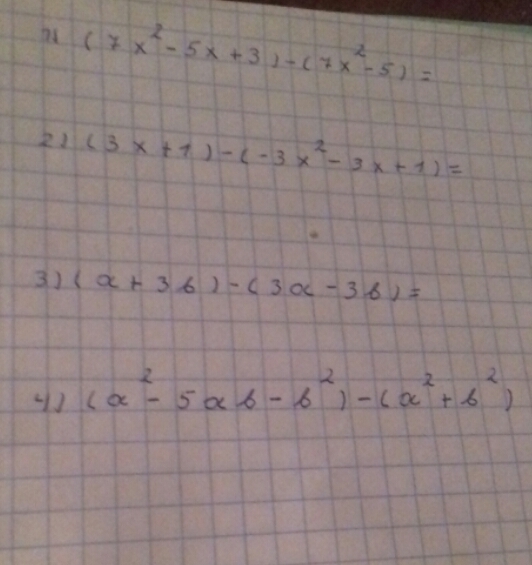 1) (7x² - 5x + 3) - (7x² - 5) =
2) (3x + 1) - (-3x² - 3x + 1) =
3) (a + 3b) - (3a - 3b) =
4) (a² - 5ab - b²) - (a² + b²)